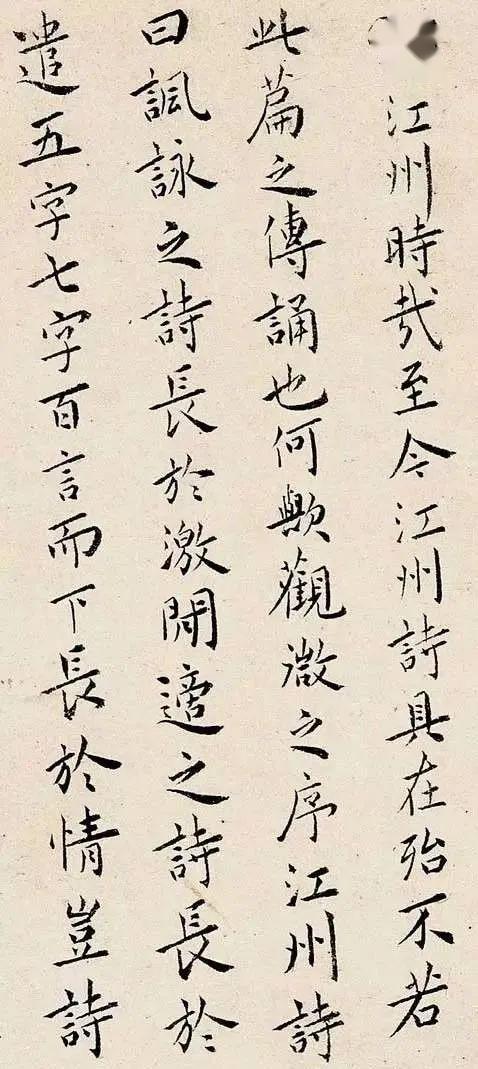 江州時哉至今江州詩具在殆不若
此篇之傳誦也何歟觀微之序江州詩
曰諷詠之詩長於激閒適之詩長於
遣五字七字百言而下長於情豈詩